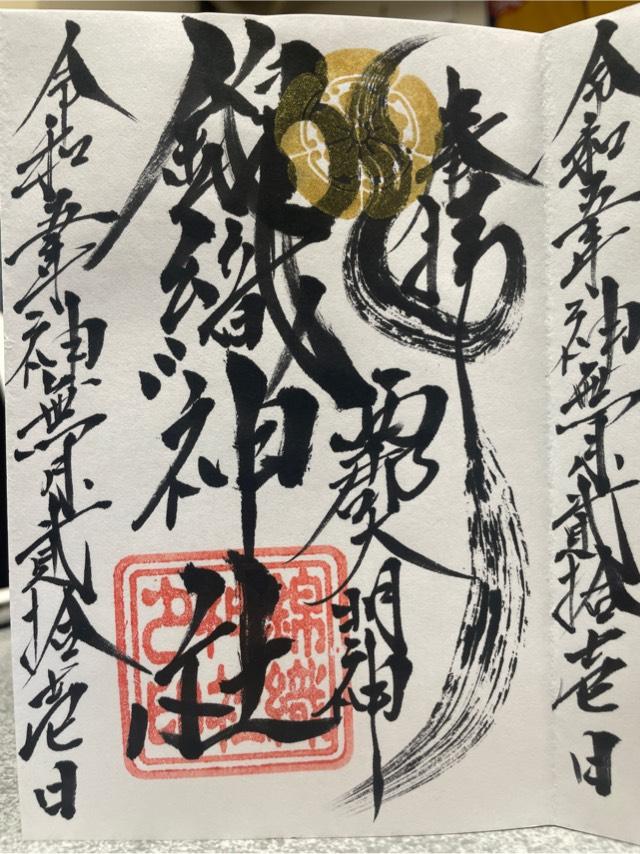 令和五年神無月貳拾壱日
奉拝
明神
錦織神社
錦織
神社
之印
令和五年神無月貳拾壱日